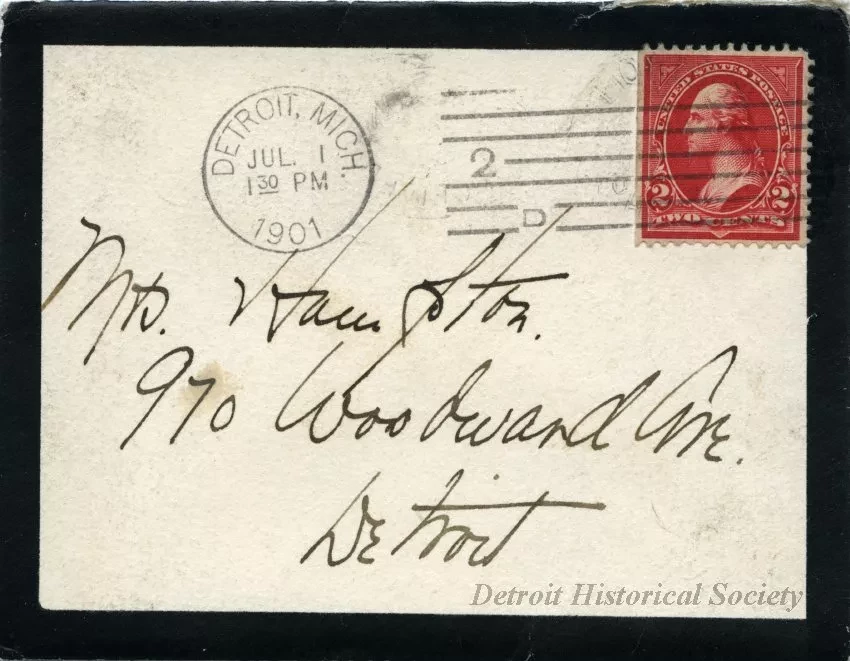 DETROIT, MICH.
JUL. 1
1 30 PM
1901
2
D
UNITED STATES POSTAGE
2 2
TWO CENTS
Mrs. Hampton.
970 Woodward Ave.
Detroit
Detroit Historical Society